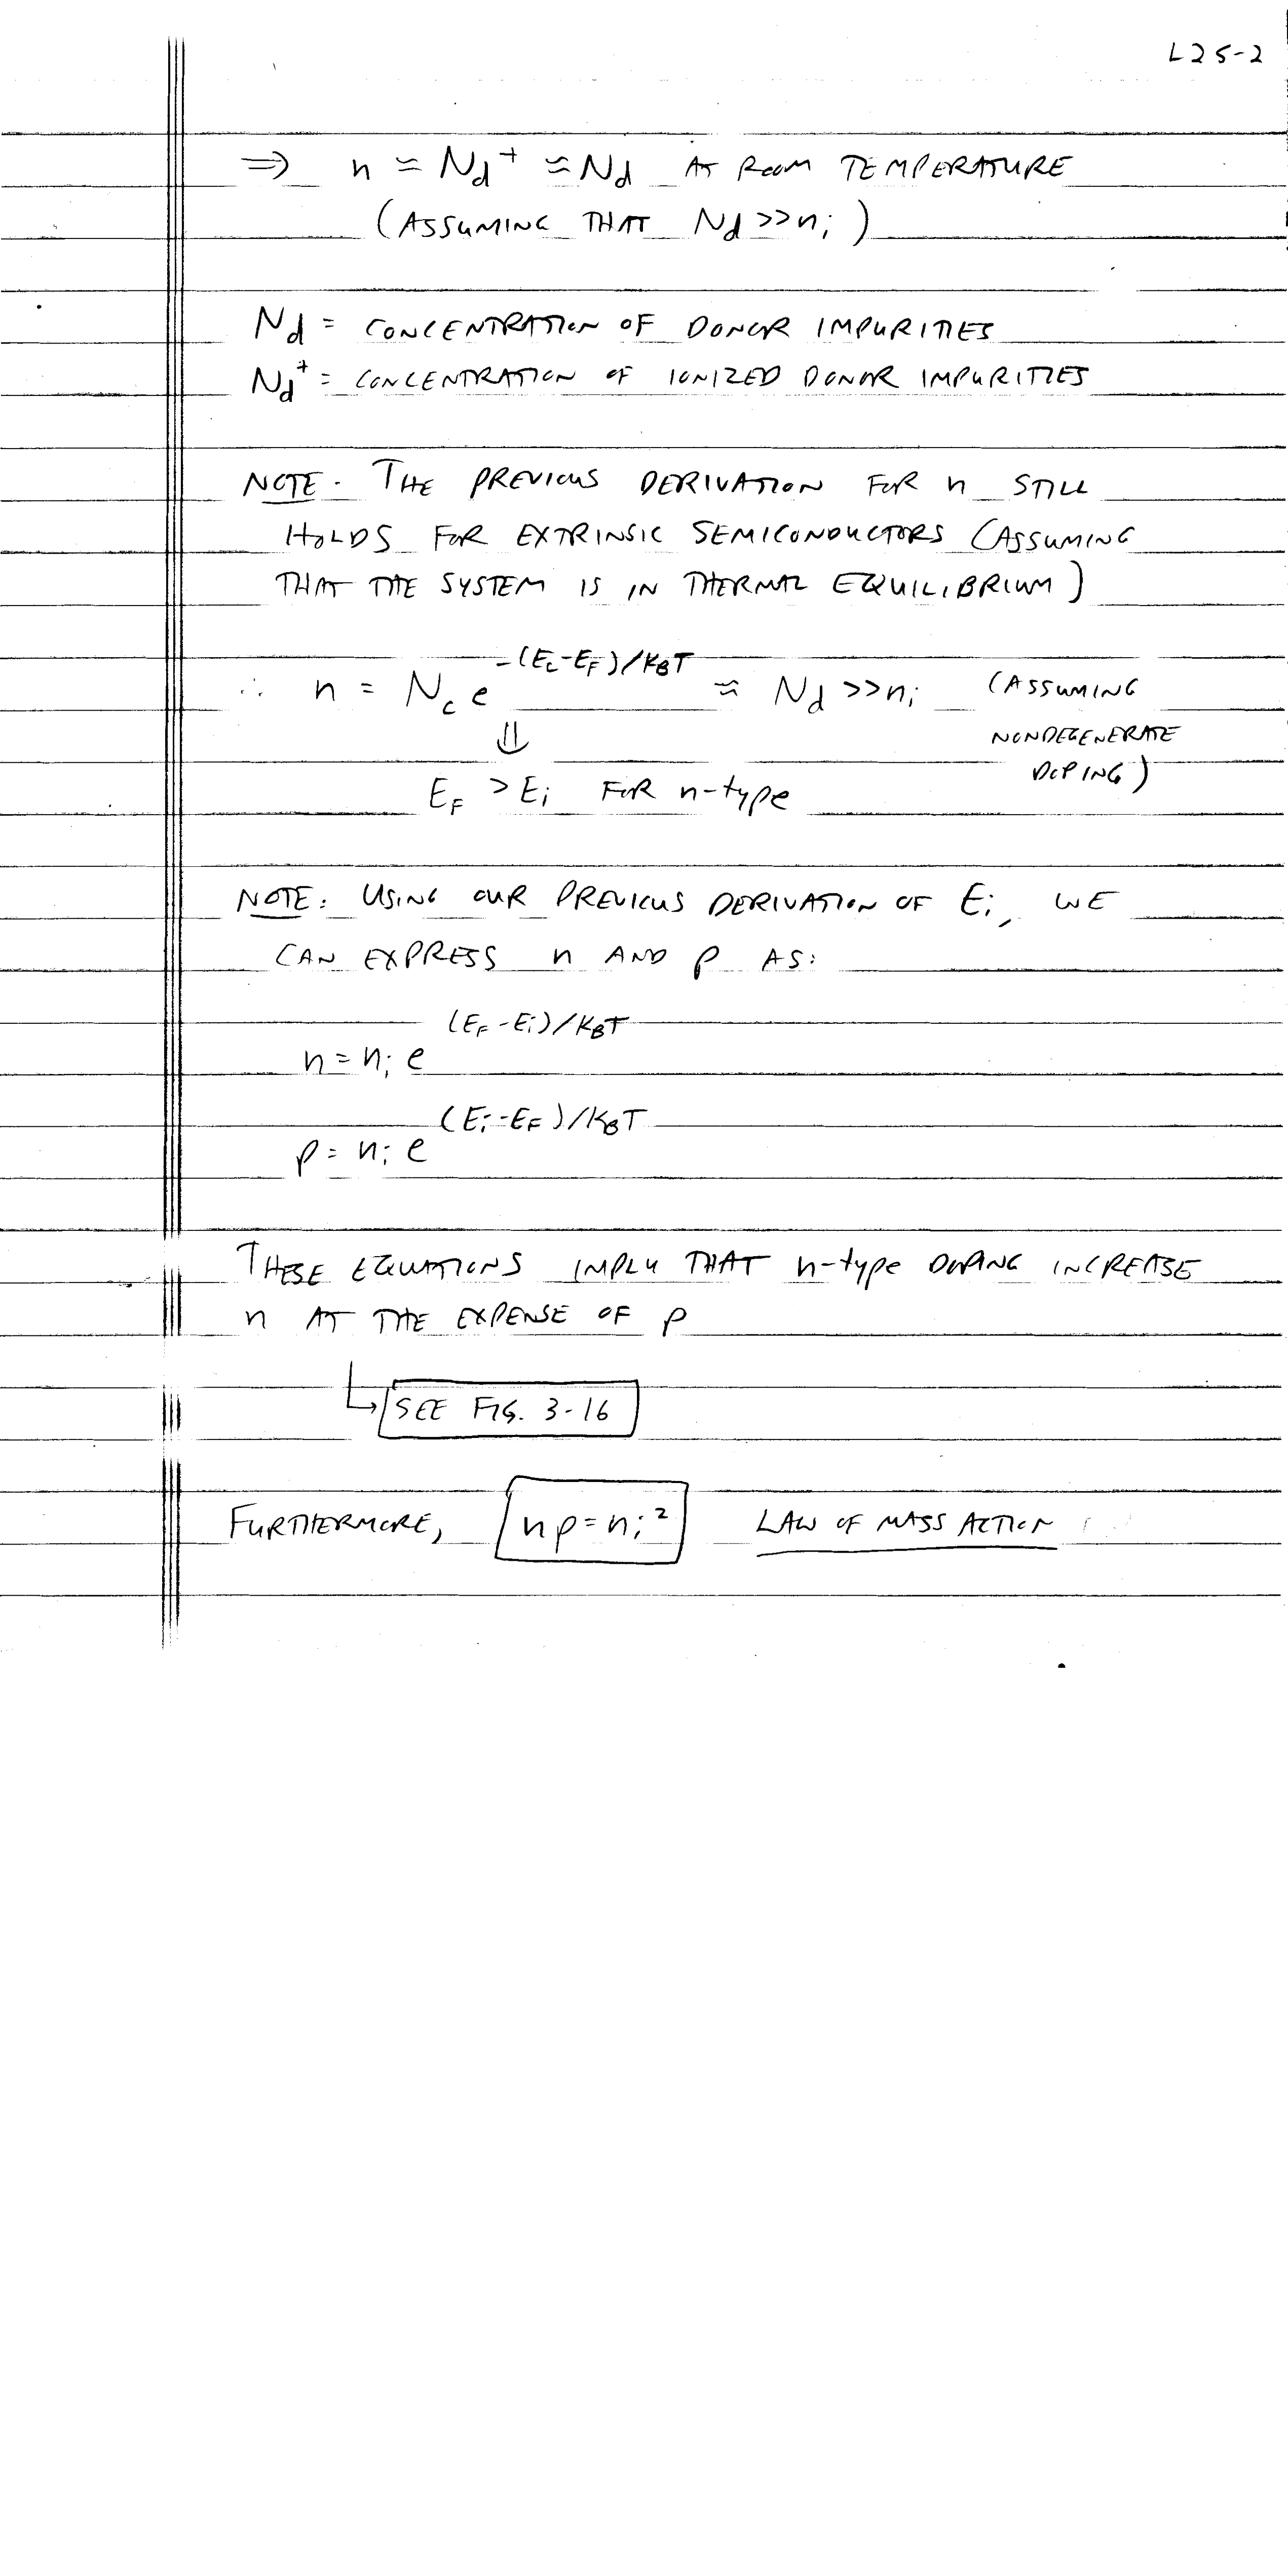 L25-2
⇒ n ≈ Nd⁺ ≈ Nd AT ROOM TEMPERATURE
(ASSUMING THAT Nd >> ni)
Nd = CONCENTRATION OF DONOR IMPURITIES
Nd⁺ = CONCENTRATION OF IONIZED DONOR IMPURITIES
NOTE: THE PREVIOUS DERIVATION FOR n STILL
HOLDS FOR EXTRINSIC SEMICONDUCTORS (ASSUMING
THAT THE SYSTEM IS IN THERMAL EQUILIBRIUM)
∴ n = Nc e^-(Ec-EF)/KBT ≈ Nd >> ni (ASSUMING
NONDEGENERATE
DOPING)
⇓
EF > Ei FOR n-type
NOTE: USING OUR PREVIOUS DERIVATION OF Ei, WE
CAN EXPRESS n AND p AS:
n = ni e^(EF-Ei)/KBT
p = ni e^(Ei-EF)/KBT
THESE EQUATIONS IMPLY THAT n-type DOPING INCREASE
n AT THE EXPENSE OF p
↳ SEE FIG. 3-16
FURTHERMORE, np = ni² LAW OF MASS ACTION